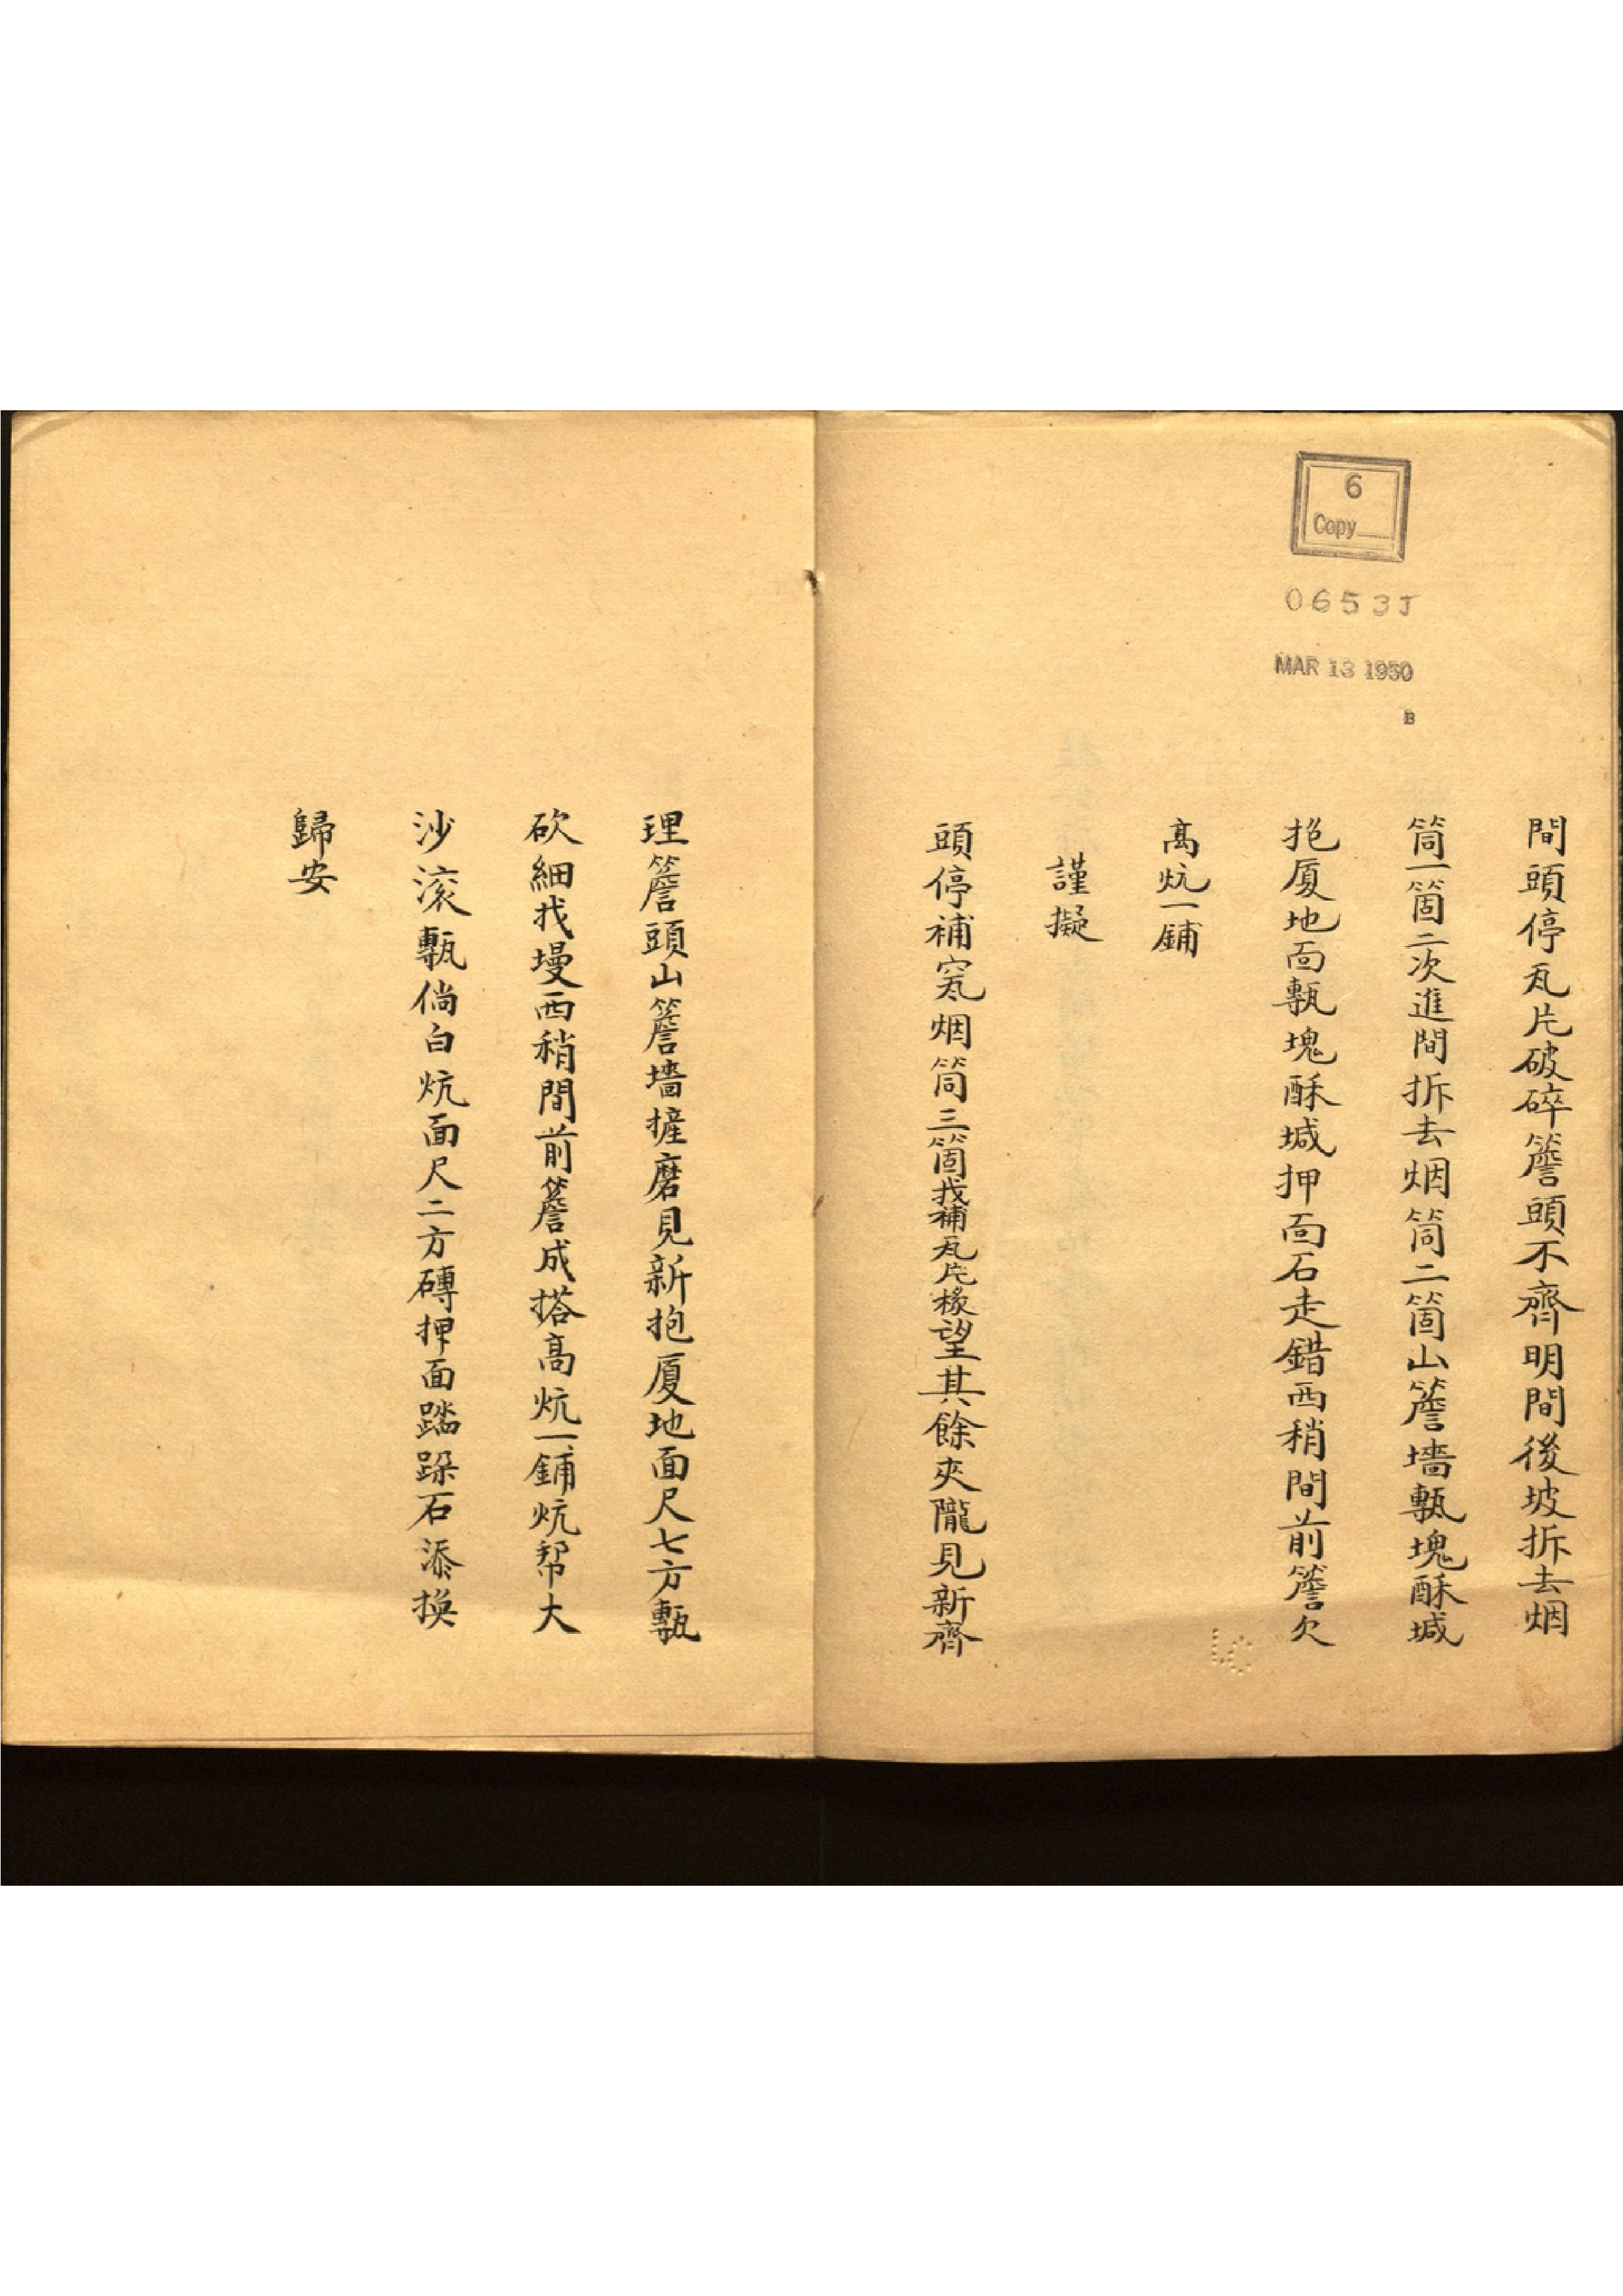 6
Copy
0653J
MAR 13 1950
B
間頭停瓦片破碎簷頭不齊明間後坡拆去烟
筒一箇二次進間拆去烟筒二箇山簷墻甎塊酥堿
抱厦地面甎塊酥堿押面石走錯西稍間前簷欠
高炕一鋪
謹擬
頭停補窊烟筒三箇找補瓦片椽望其餘夾隴見新齊
理簷頭山簷墻摌磨見新抱厦地面尺七方甎
砍細找墁西稍間前簷成搭高炕一鋪炕帮大
沙滚甎倘白炕面尺二方磚押面踏跺石添換
歸安
LC